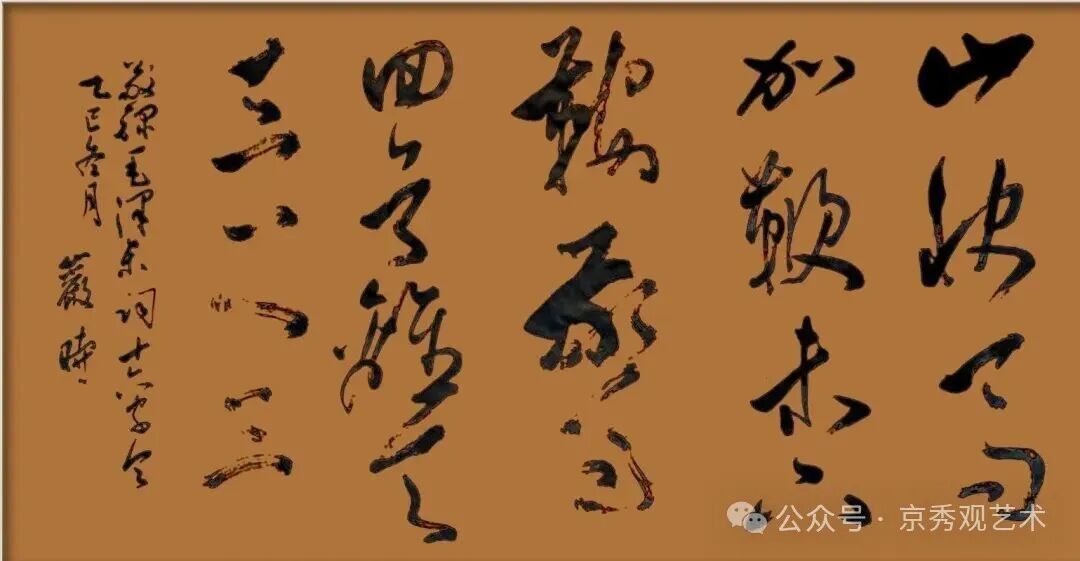 山快馬
加鞭未下
鞍驚
回首離天
三尺三
敬録毛澤東词十六字令
乙巳冬月
公众号·京秀观艺术